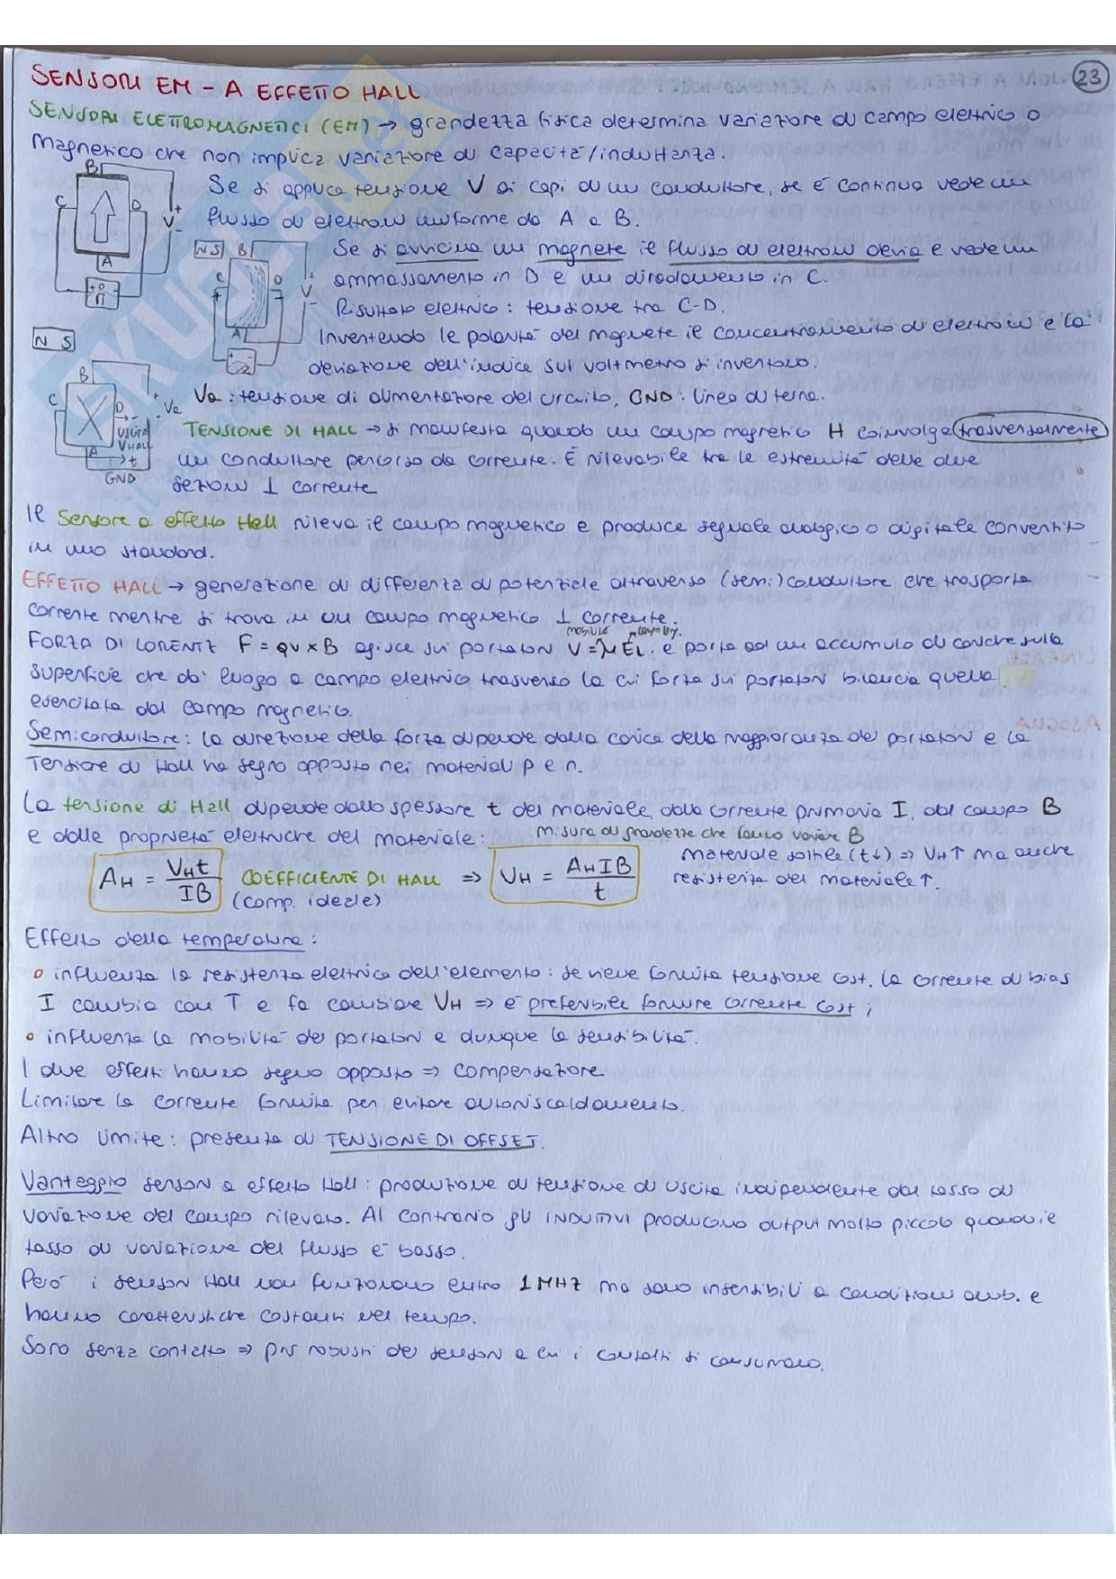 23
SENSORI EM - A EFFETTO HALL
SENSORI ELETTROMAGNETICI (EM) → grandezza fisica determina variazione di campo elettrico o
magnetico che non implica variazione di capacità/induttanza.
Se si applica tensione V ai capi di un conduttore, se è continua vede un
flusso di elettroni uniforme da A a B.
Se si avvicina un magnete il flusso di elettroni devia e vede un
ammassamento in D e un diradamento in C.
Risultato elettrico: tensione tra C-D.
Invertendo le polarità del magnete il concentramento di elettroni e la
deviazione dell'indice sul voltmetro si invertono.
B
C
D
V
+
-
A
+0-
N S
B
C
D
V
+
-
A
N S
B
C
D
Va
+
-
USCITA
VHALL
A
t
GND
Va: tensione di alimentazione del circuito, GND: linea di terra.
TENSIONE DI HALL → si manifesta quando un campo magnetico H coinvolge trasversalmente
un conduttore percorso da corrente. È rilevabile tra le estremità delle due
sezioni ⊥ corrente
Il Sensore a effetto Hall rileva il campo magnetico e produce segnale analogico o digitale convertito
in uno standard.
EFFETTO HALL → generazione di differenza di potenziale attraverso (semi)conduttore che trasporta
corrente mentre si trova in un campo magnetico ⊥ corrente.
mobilità
FORZA DI LORENTZ F = qv×B agisce sui portatori V=μEL. e porta ad un accumulo di cariche sulla
superficie che da' luogo a campo elettrico trasverso la cui forza sui portatori bilancia quella
esercitata dal campo magnetico.
Semiconduttore: la direzione della forza dipende dalla carica della maggioranza dei portatori e la
Tensione di Hall ha segno opposto nei materiali p e n.
La tensione di Hall dipende dallo spessore t del materiale, dalla corrente primaria I, dal campo B
e dalle proprietà elettriche del materiale: misura di grandezze che fanno variare B
AH = VHt / IB
COEFFICIENTE DI HALL
(comp. ideale)
⇒ VH = AHIB / t
Materiale sottile (t↓) ⇒ VH↑ ma anche
resistenza del materiale↑.
Effetto della temperatura:
o influenza la resistenza elettrica dell'elemento: se viene fornita tensione cost. la corrente di bias
I cambia con T e fa cambiare VH ⇒ è preferibile fornire corrente cost;
o influenza la mobilità dei portatori e dunque la sensibilità.
I due effetti hanno segno opposto ⇒ compensazione
Limitare la corrente fornita per evitare autoriscaldamento.
Altro limite: presenza di TENSIONE DI OFFSET.
Vantaggio sensori a effetto Hall: produzione di tensione di uscita indipendente dal tasso di
variazione del campo rilevato. Al contrario gli INDUTTIVI producono output molto piccolo quando il
tasso di variazione del flusso è basso.
Però i sensori Hall non funzionano entro 1MHz ma sono insensibili a condizioni amb. e
hanno caratteristiche costanti nel tempo.
Sono senza contatto ⇒ più robusti dei sensori a cui i contatti si consumano.